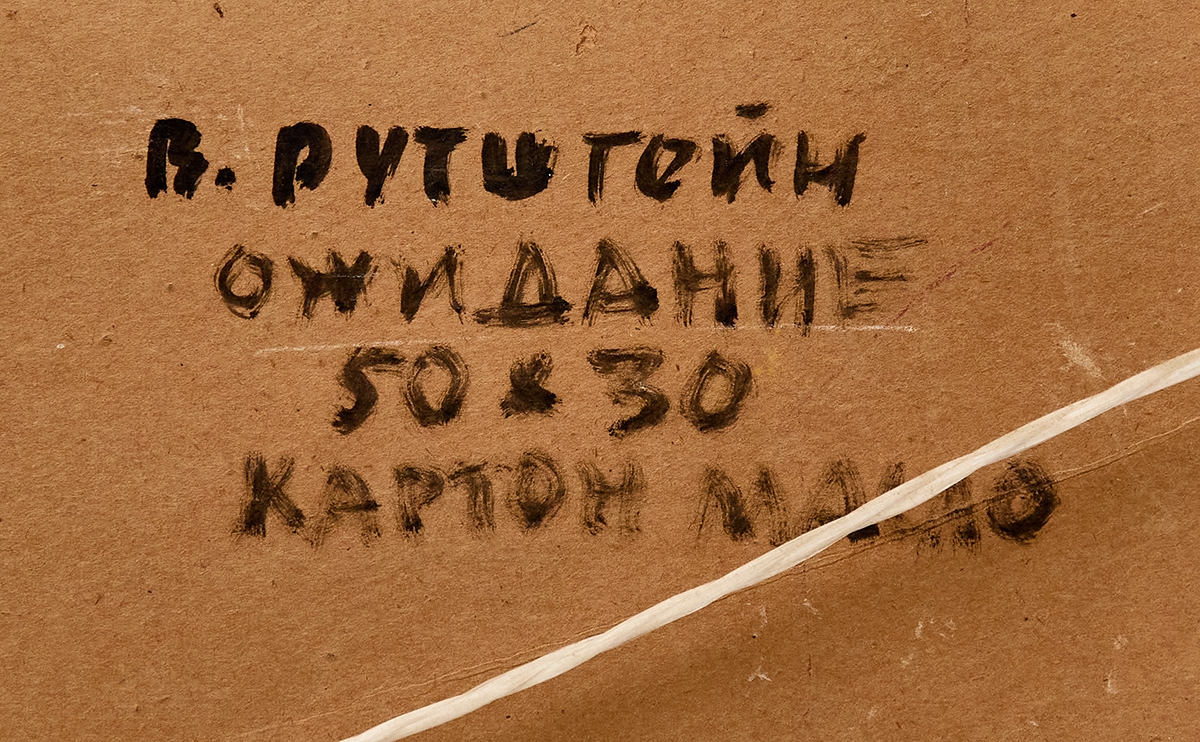 В. РУТШТЕЙН
ОЖИДАНИЕ
50 х 30
КАРТОН МАСЛО